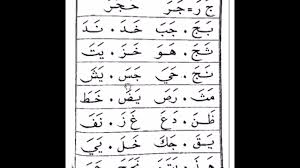 ج ر = جَرَ حَجَرَ
بَجَ . جَبَ خَدَ . نَدَ
تَجَ . هَوَ خَزَ . يَتَ
نَجَ . حَيَ جَسَ . يَشَ
مَثَ . رَصَ يَضَ . خَطَ
ظَنَ . دَعَ غَزَ . نَفَ
يَقَ . جَكَ خَلَ . يَيَ